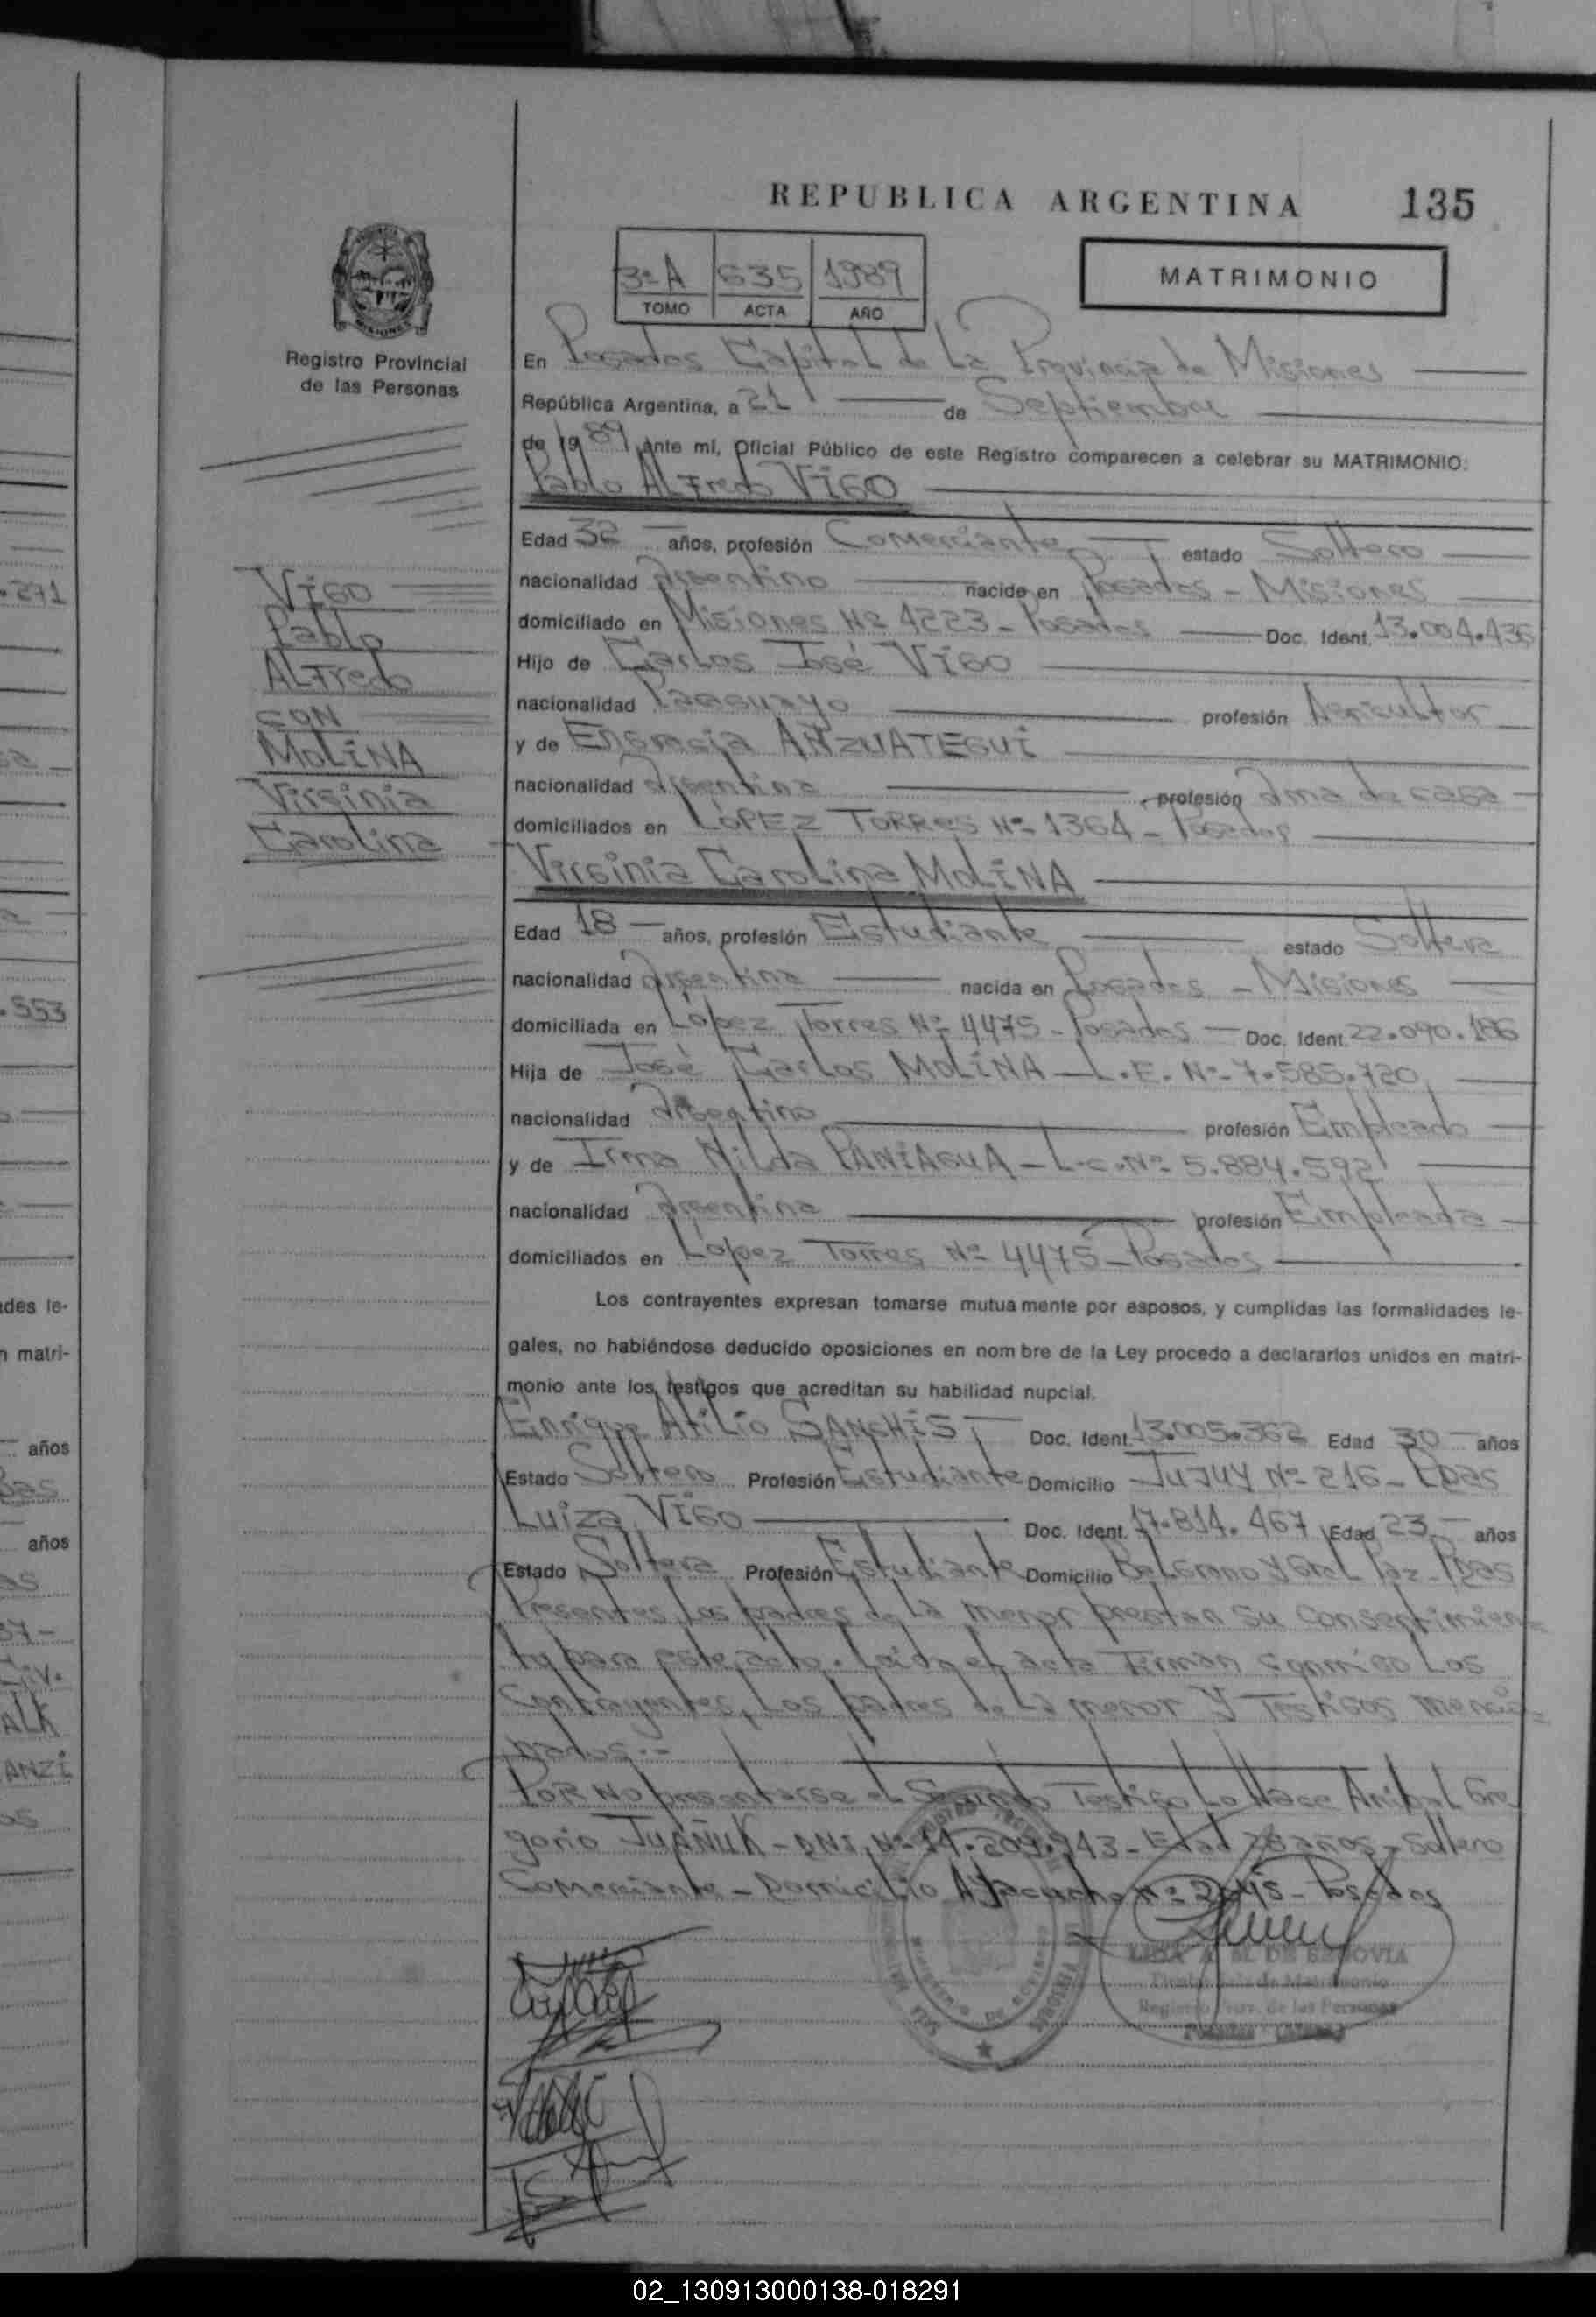 REPUBLICA ARGENTINA 135
3º A 635 1989
TOMO ACTA AÑO
MATRIMONIO
Registro Provincial
de las Personas
En Posadas Capital de La Provincia de Misiones
República Argentina, a 21 de Septiembre
de 1989 ante mí, Oficial Público de este Registro comparecen a celebrar su MATRIMONIO:
Pablo ALFredo ViGO
Edad 32 años, profesión Comerciante estado Soltero
nacionalidad Argentino nacido en Posadas - Misiones
domiciliado en Misiones Nº 4223 - Posadas Doc. Ident. 13.004.436
Hijo de Carlos José ViGO
nacionalidad Paraguayo profesión Agricultor
y de Engracia ANZUATEGUi
nacionalidad Argentina profesión Ama de casa
domiciliados en LóPEZ TORRes Nº 1364 - Posadas
Virginia Carolina MoLiNA
Edad 18 años, profesión Estudiante estado Soltera
nacionalidad Argentina nacida en Posadas - Misiones
domiciliada en López Torres Nº 4475 - Posadas Doc. Ident. 22.090.186
Hija de José Carlos MoLiNA - L.E. Nº 7.585.720
nacionalidad Argentino profesión Empleado
y de Irma Nilda PANiAGUA - L.C. Nº 5.884.592
nacionalidad Argentina profesión Empleada
domiciliados en López Torres Nº 4475 - Posadas
Los contrayentes expresan tomarse mutuamente por esposos, y cumplidas las formalidades le-
gales, no habiéndose deducido oposiciones en nombre de la Ley procedo a declararlos unidos en matri-
monio ante los testigos que acreditan su habilidad nupcial.
Enrique Atilio SANCHiS Doc. Ident. 13.005.362 Edad 30 años
Estado Soltero Profesión Estudiante Domicilio JUJUY Nº 216 - Pdas
Luiza ViGO Doc. Ident. 17.814.467 Edad 23 años
Estado Soltera Profesión Estudiante Domicilio BeLGrano y Gral Paz - Pdas
Presentes los padres de La menor prestan su consentimien-
to para este acto. Leida el acta Firman conmigo Los
Contrayentes, Los padres de La menor y Testigos mencio-
nados.-
POR NO presentarse el Segundo Testigo Lo Hace Anibal Gre
gorio JUAÑUK - DNI. Nº 14.209.943 - Edad 28 años - Soltero
Comerciante - Domicilio Ayacucho Nº 2045 - Posadas
ViGO
Pablo
ALFredo
CON
MOLiNA
Virginia
Carolina
DE SEGOVIA
Matrimonio
Registro Prov. de las Personas
Posadas
.271
.553
ades le-
n matri-
años
años
ALK
ANZi
02_130913000138-018291